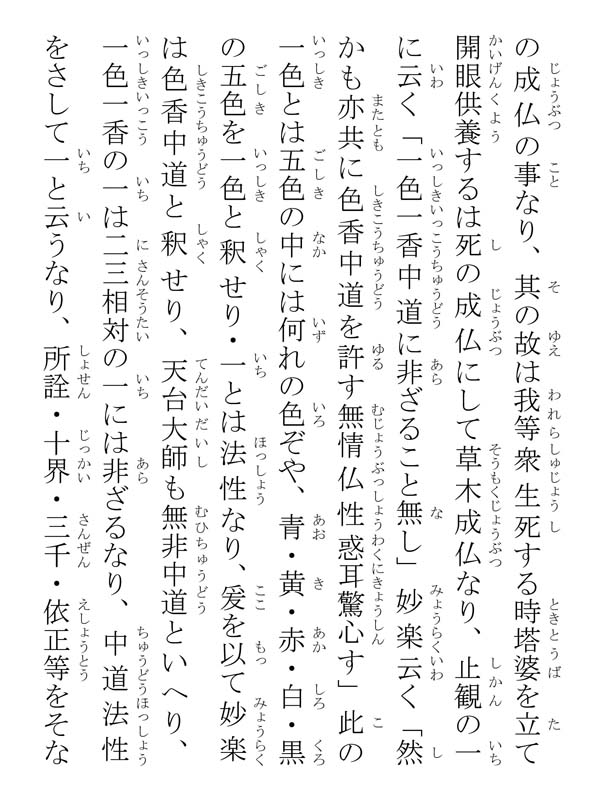 の成仏の事なり、其の故は我等衆生死する時塔婆を立て
開眼供養するは死の成仏にして草木成仏なり、止観の一
に云く「一色一香中道に非ざること無し」妙楽云く「然
かも亦共に色香中道を許す無情仏性惑耳驚心す」此の
一色とは五色の中には何れの色ぞや、青・黄・赤・白・黒
の五色を一色と釈せり・一とは法性なり、爰を以て妙楽
は色香中道と釈せり、天台大師も無非中道といへり、
一色一香の一は二三相対の一には非ざるなり、中道法性
をさして一と云うなり、所詮・十界・三千・依正等をそな